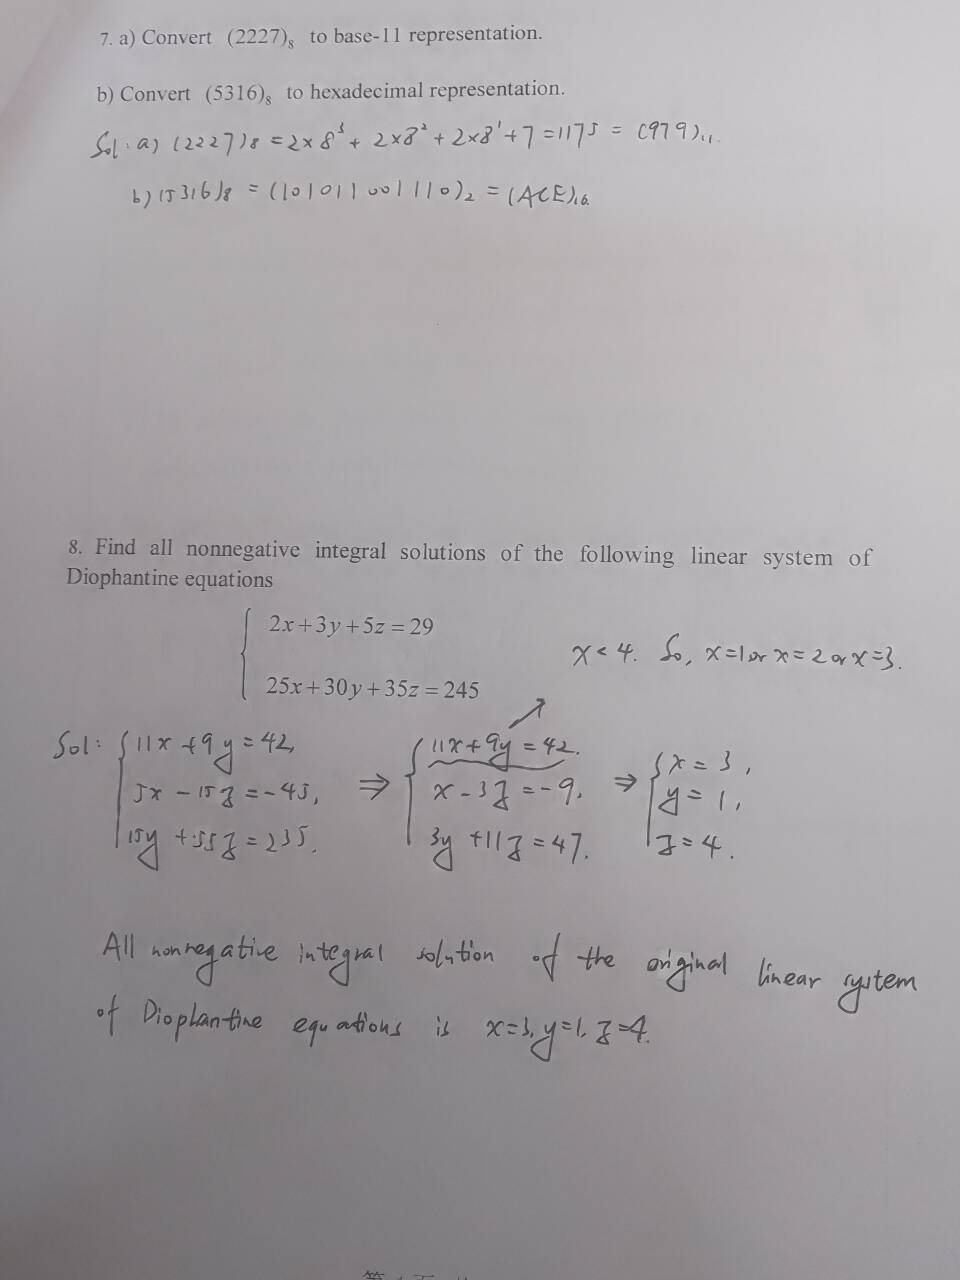 7. a) Convert (2227)₈ to base-11 representation.
b) Convert (5316)₈ to hexadecimal representation.
Sol: a) (2227)₈ = 2×8³ + 2×8² + 2×8¹ + 7 = 1175 = (979)₁₁.
b) (5316)₈ = (101011001110)₂ = (ACE)₁₆.
8. Find all nonnegative integral solutions of the following linear system of
Diophantine equations
2x+3y+5z=29
x<4. So, x=1 or x=2 or x=3.
25x+30y+35z=245
Sol: { 11x+9y=42, ⇒ { 11x+9y=42. ⇒ { x=3,
5x-15z=-45, x-3z=-9. y=1,
15y+55z=235. 3y+11z=47. z=4.
All nonnegative integral solution of the original linear system
of Dioplantine equations is x=3, y=1, z=4.